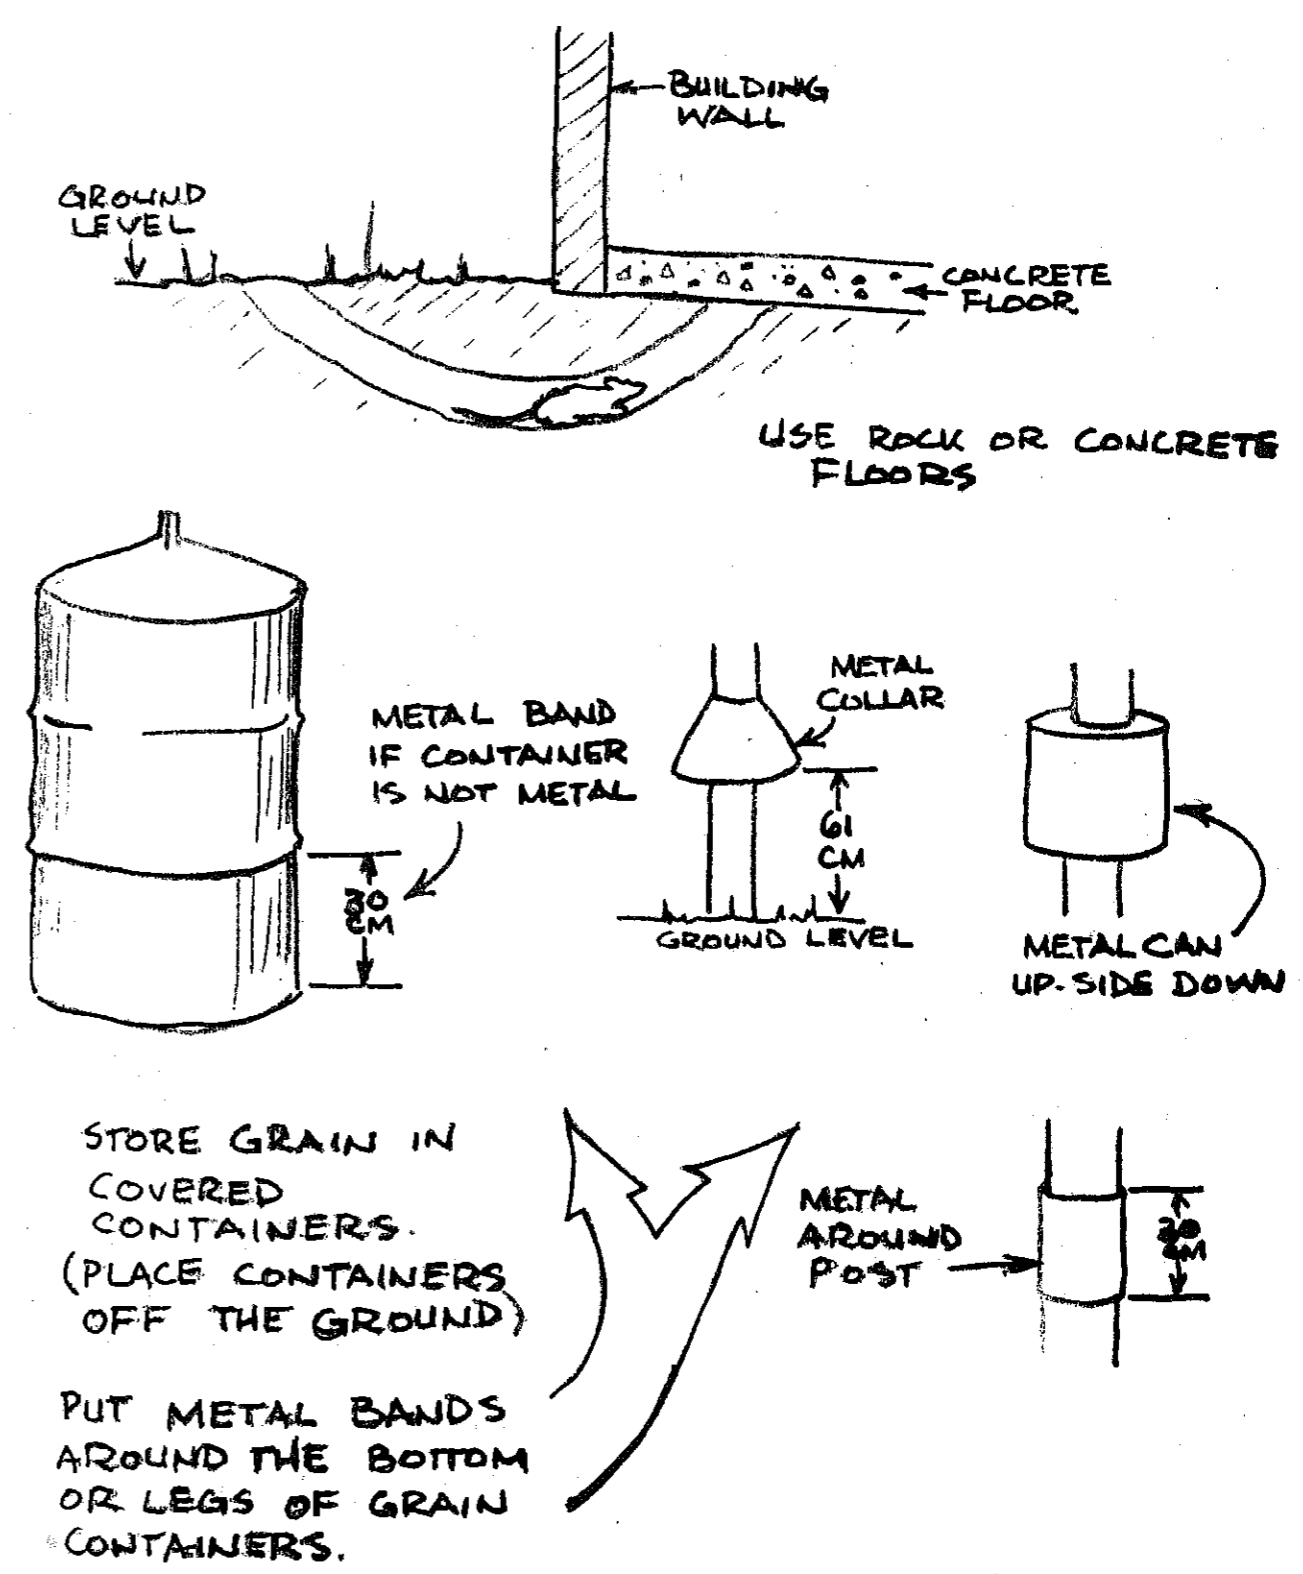 BUILDING
WALL
GROUND
LEVEL
CONCRETE
FLOOR.
USE ROCK OR CONCRETE
FLOORS
METAL BAND
IF CONTAINER
IS NOT METAL
30
CM
METAL
COLLAR
61
CM
GROUND LEVEL
METAL CAN
UP-SIDE DOWN
STORE GRAIN IN
COVERED
CONTAINERS.
(PLACE CONTAINERS
OFF THE GROUND)
METAL
AROUND
POST
30
CM
PUT METAL BANDS
AROUND THE BOTTOM
OR LEGS OF GRAIN
CONTAINERS.